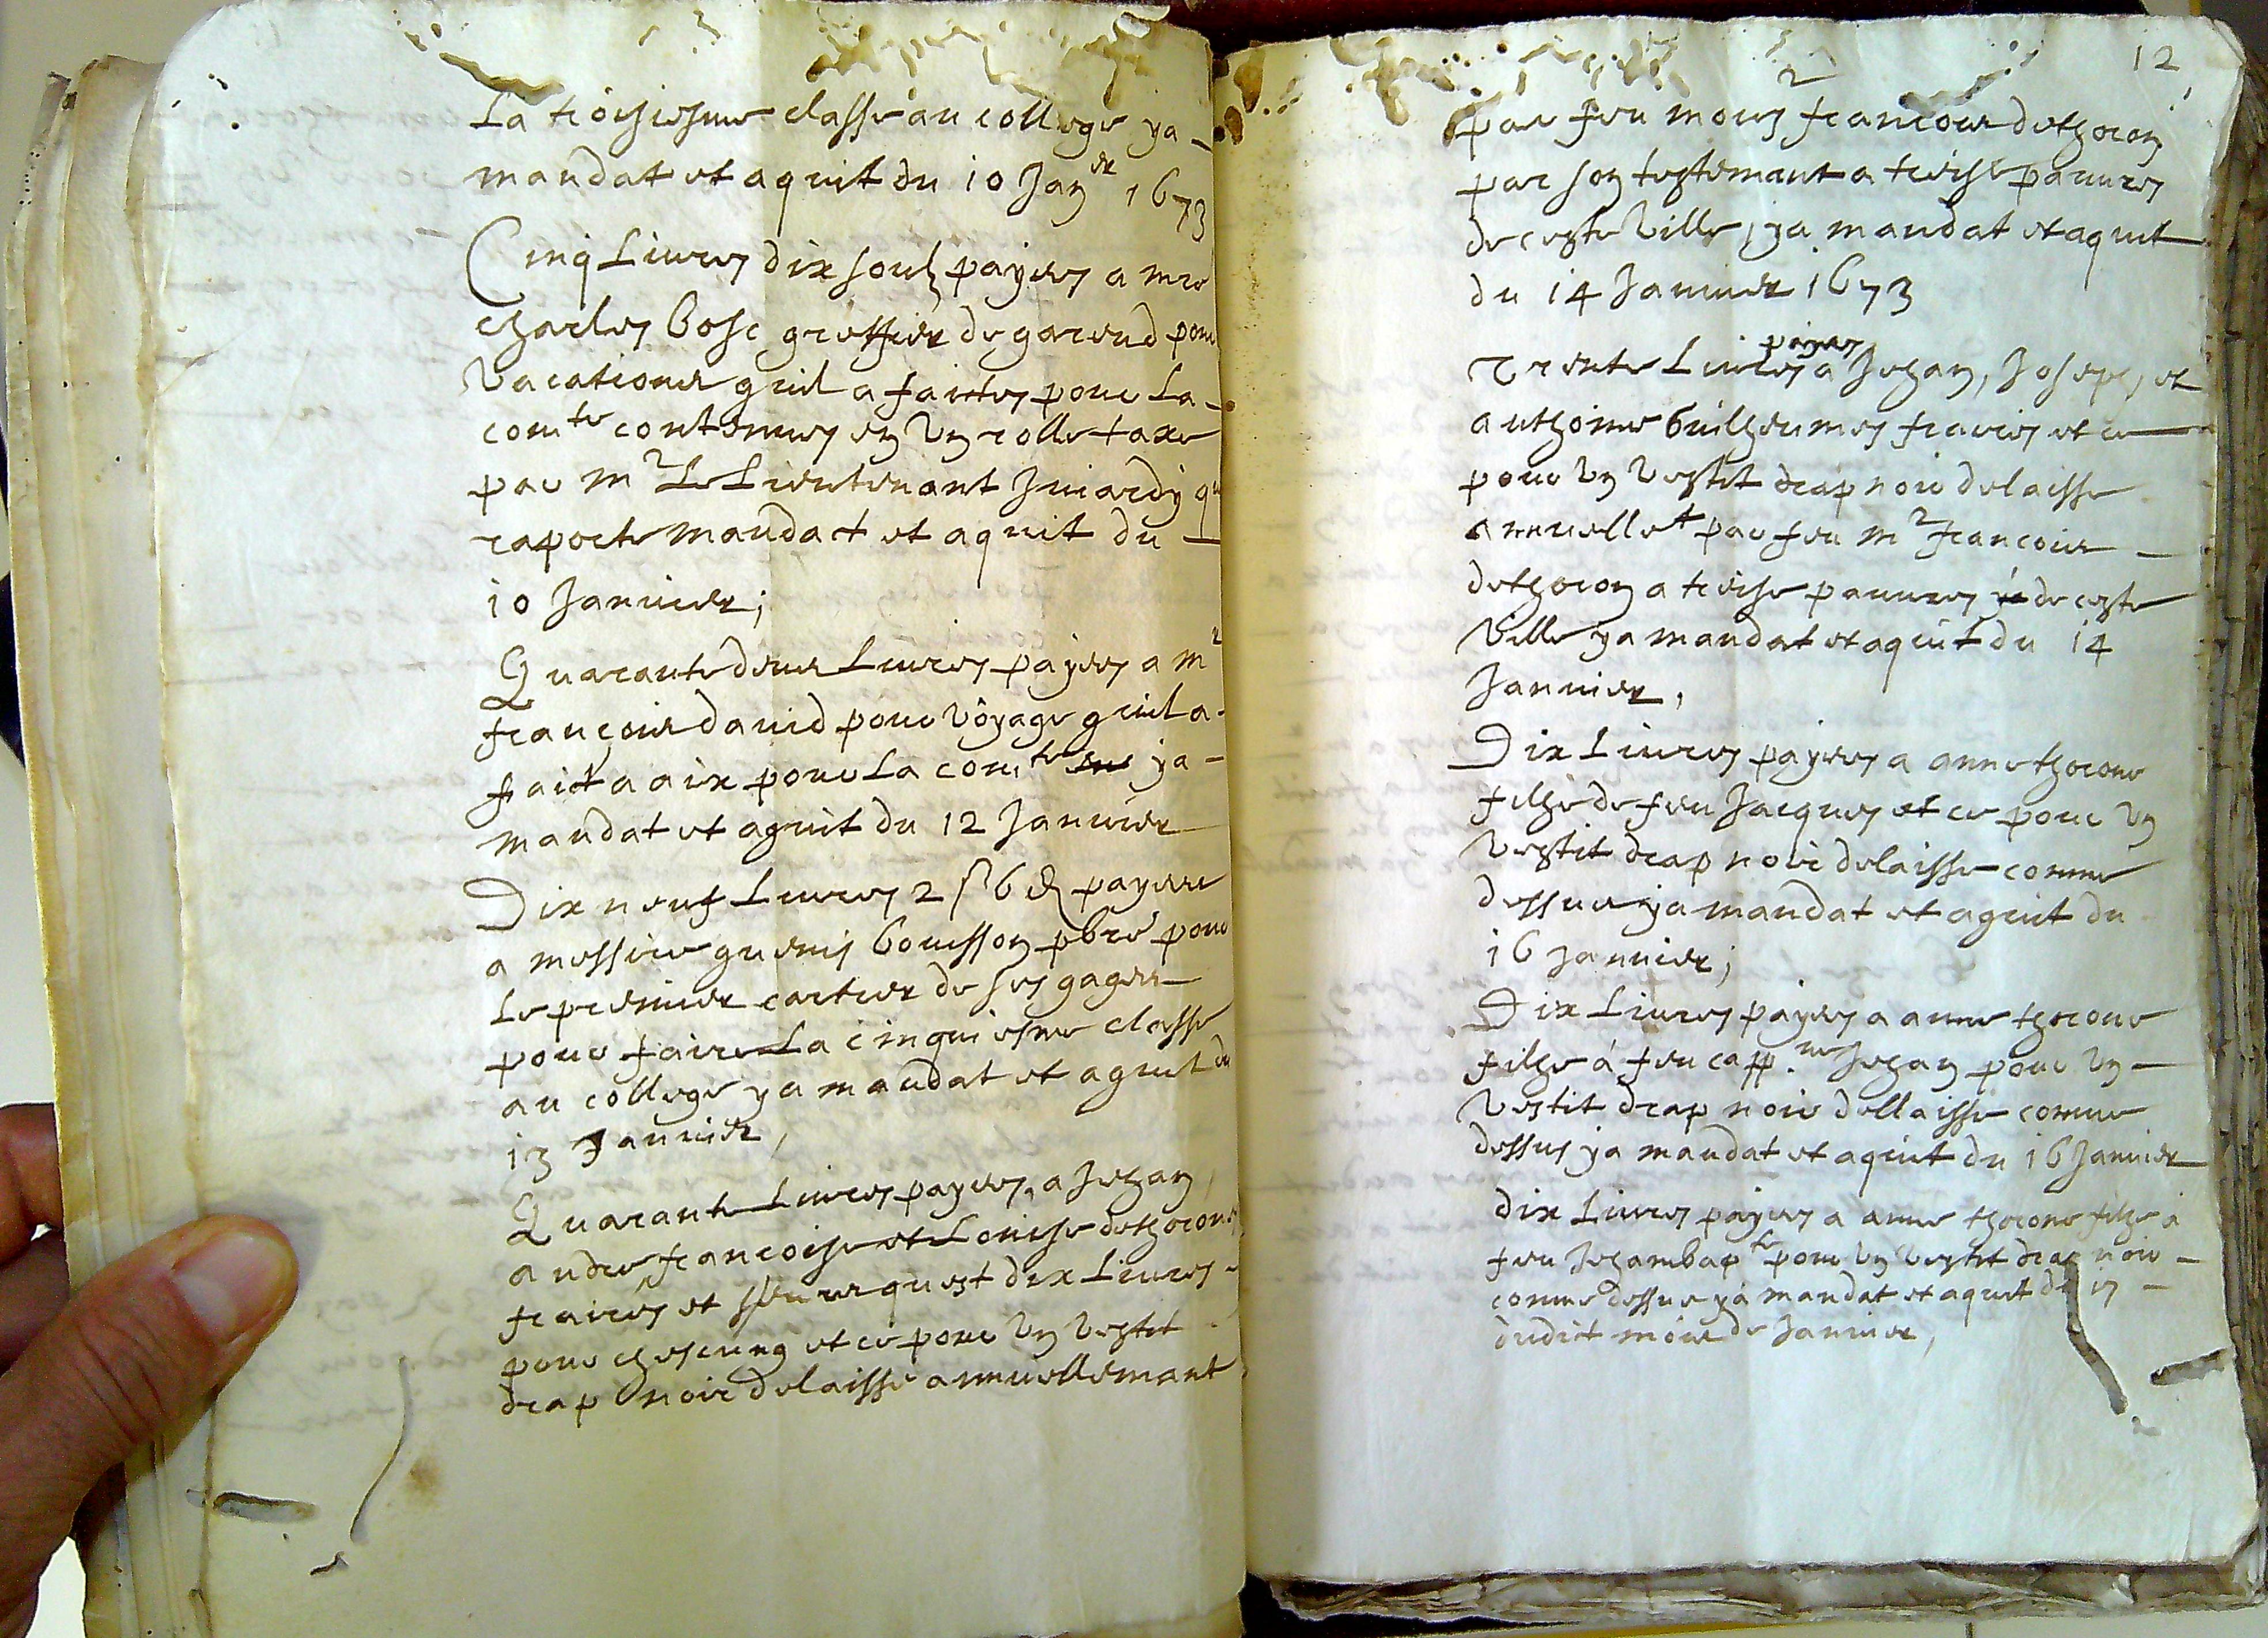 La troisiesme classe au college ya
mandat et aquit du 10 Janer 1673
Cinq Livres dix soulz payes a mre
charles bosc greffier de garend pour
vacations quil a faictes pour La
comte contenues en un rolle taxe
par mr Le Lieutenant Juiardy qu
raporte mandat et aquit du
10 Janvier;
Quarante deux Livres payes a mr
françois david pour voyage quil a
faict a aix pour La comte ya
mandat et aquit du 12 Janvier
Dix neuf Livres 2 s 6 d payees
a messire bouisson pbre pour
Le premier cartier de ses gages
pour faire La cinquiesme classe
au college ya mandat et aquit du
13 Janvier,
Quarante Livres payes, a Jehan,
andre francoise et Louise dethorons
freres et sœur quest dix Livres
pour chescung et ce pour un vestit
drap noir delaisse annuellemant
12
par feu mr francois dethoron
par son testemant a treise pauvres
de ceste ville, ya mandat et aquit
du 14 Janvier 1673
payes
Trente Livres a Jehan, Joseph, et
anthoine Guilheumes freres et ce
pour un vestit drap noir delaisse
annuellet par feu mr francois
dethoron a treise pauvres de ceste
ville ya mandat et aquit du 14
Janvier,
Dix Livres payes a anne thorone
filhe de feu Jacques et ce pour un
vestit drap noir delaisse comme
dessus ya mandat et aquit du
16 Janvier;
Dix Livres payes a anne thorone
filhe á feu capp.ne Jehan pour un
vestit drap noir dellaisse comme
dessus ya mandat et aquit du 16 Janvier
dix Livres payes a anne thorone filhe a
feu Jehanbapte pour un vestit drap noir
comme dessus ya mandat et aquit du 17
dudict mois de Janvier,